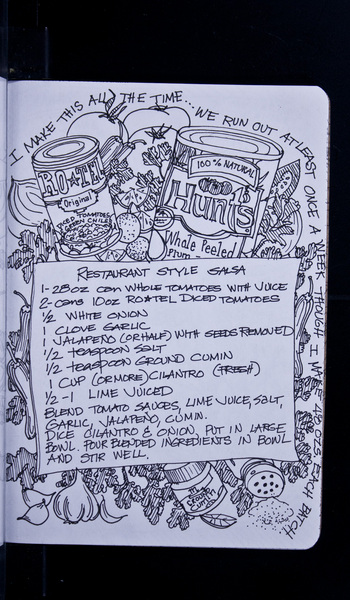 I MAKE THIS ALL THE TIME... WE RUN OUT AT LEAST ONCE A WEEK THOUGH I MAKE 48 OZS EACH BATCH
RO*TEL
Original
DICED TOMATOES
& GREEN CHILIES
100% NATURAL
Hunt's
Whole Peeled
Plum
RESTAURANT STYLE SALSA
1-28oz can WHOLE TOMATOES WITH JUICE
2-cans 10oz RO*TEL DICED TOMATOES
1/2 WHITE ONION
1 CLOVE GARLIC
1 JALAPEÑO (OR HALF) WITH SEEDS REMOVED
1/2 - TEASPOON SALT
1/2 - TEASPOON GROUND CUMIN
1 CUP (OR MORE) CILANTRO (FRESH)
1/2 - 1 LIME JUICED
BLEND TOMATO SAUCES, LIME JUICE, SALT,
GARLIC, JALAPEÑO, CUMIN.
DICE CILANTRO & ONION. PUT IN LARGE
BOWL. POUR BLENDED INGREDIENTS IN BOWL
AND STIR WELL.
Cumin